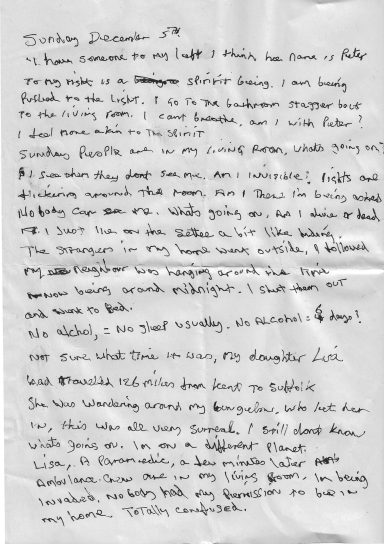 Sunday December 5TH
"I have someone to my left I think his name is Peter
To my right is a spirit being. I am being
pushed to the light. I go to the bathroom stagger back
to the living room. I cant breathe, am I with Peter?
I feel more akin to the spirit
Sunday People are in my living room, whats going on?
I see them they dont see me. Am I invisible? lights are
flickering around the room. Am I there I'm being asked
Nobody can see me. Whats going on, Am I alive or dead
I Just lie on the settee a bit like hiding.
The strangers in my home went outside, I followed
my neighbour was hanging around the time
now being around midnight. I shut them out
and went to bed.
No alchol, = No sleep usually. No Alcohol = days!
Not sure what time it was, my daughter Lisa
had travelled 126 miles from Kent to Suffolk
She was wandering around my bungalow, who let her
in, this was all very surreal. I still dont know
whats going on. Im on a different planet.
Lisa, A Paramedic, a few minutes later
Ambulance crew are in my living room, Im being
invaded. Nobody had my permission to be in
my home Totally confused.